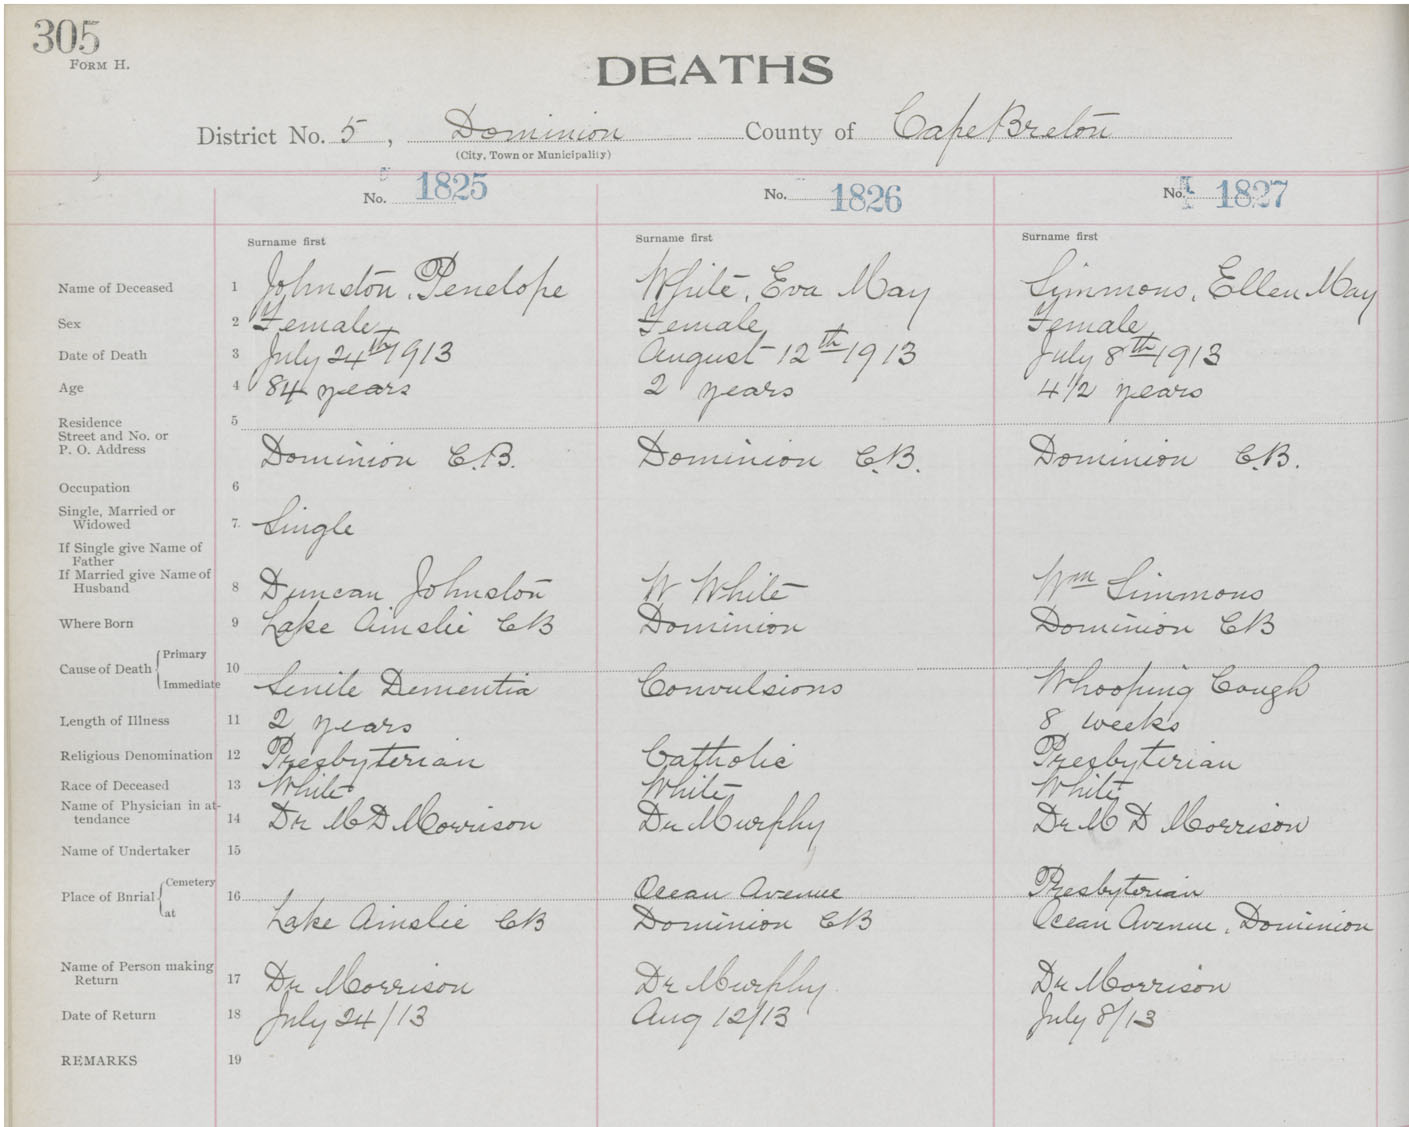 305
FORM H.
DEATHS
District No. 5, Dominion County of Cape Breton
(City, Town or Municipality)
No. 1825 No. 1826 No. 1827
Surname first Surname first Surname first
Name of Deceased 1 Johnston, Penelope White, Eva May Simmons, Ellen May
Sex 2 Female Female Female
Date of Death 3 July 24th 1913 August 12th 1913 July 8th 1913
Age 4 84 years 2 years 4 1/2 years
Residence 5
Street and No. or
P. O. Address Dominion C.B. Dominion C.B. Dominion C.B.
Occupation 6
Single, Married or
Widowed 7. Single
If Single give Name of
Father
If Married give Name of
Husband 8 Duncan Johnston W White Wm Simmons
Where Born 9 Lake Ainslie CB Dominion Dominion CB
Cause of Death { Primary 10
Immediate Senile Dementia Convulsions Whooping Cough
Length of Illness 11 2 years 8 weeks
Religious Denomination 12 Presbyterian Catholic Presbyterian
Race of Deceased 13 White White White
Name of Physician in at-
tendance 14 Dr M D Morrison Dr Murphy Dr M D Morrison
Name of Undertaker 15
Place of Burial { Cemetery 16 Ocean Avenue Presbyterian
at Lake Ainslie CB Dominion CB Ocean Avenue, Dominion
Name of Person making
Return 17 Dr Morrison Dr Murphy Dr Morrison
Date of Return 18 July 24/13 Aug 12/13 July 8/13
REMARKS 19